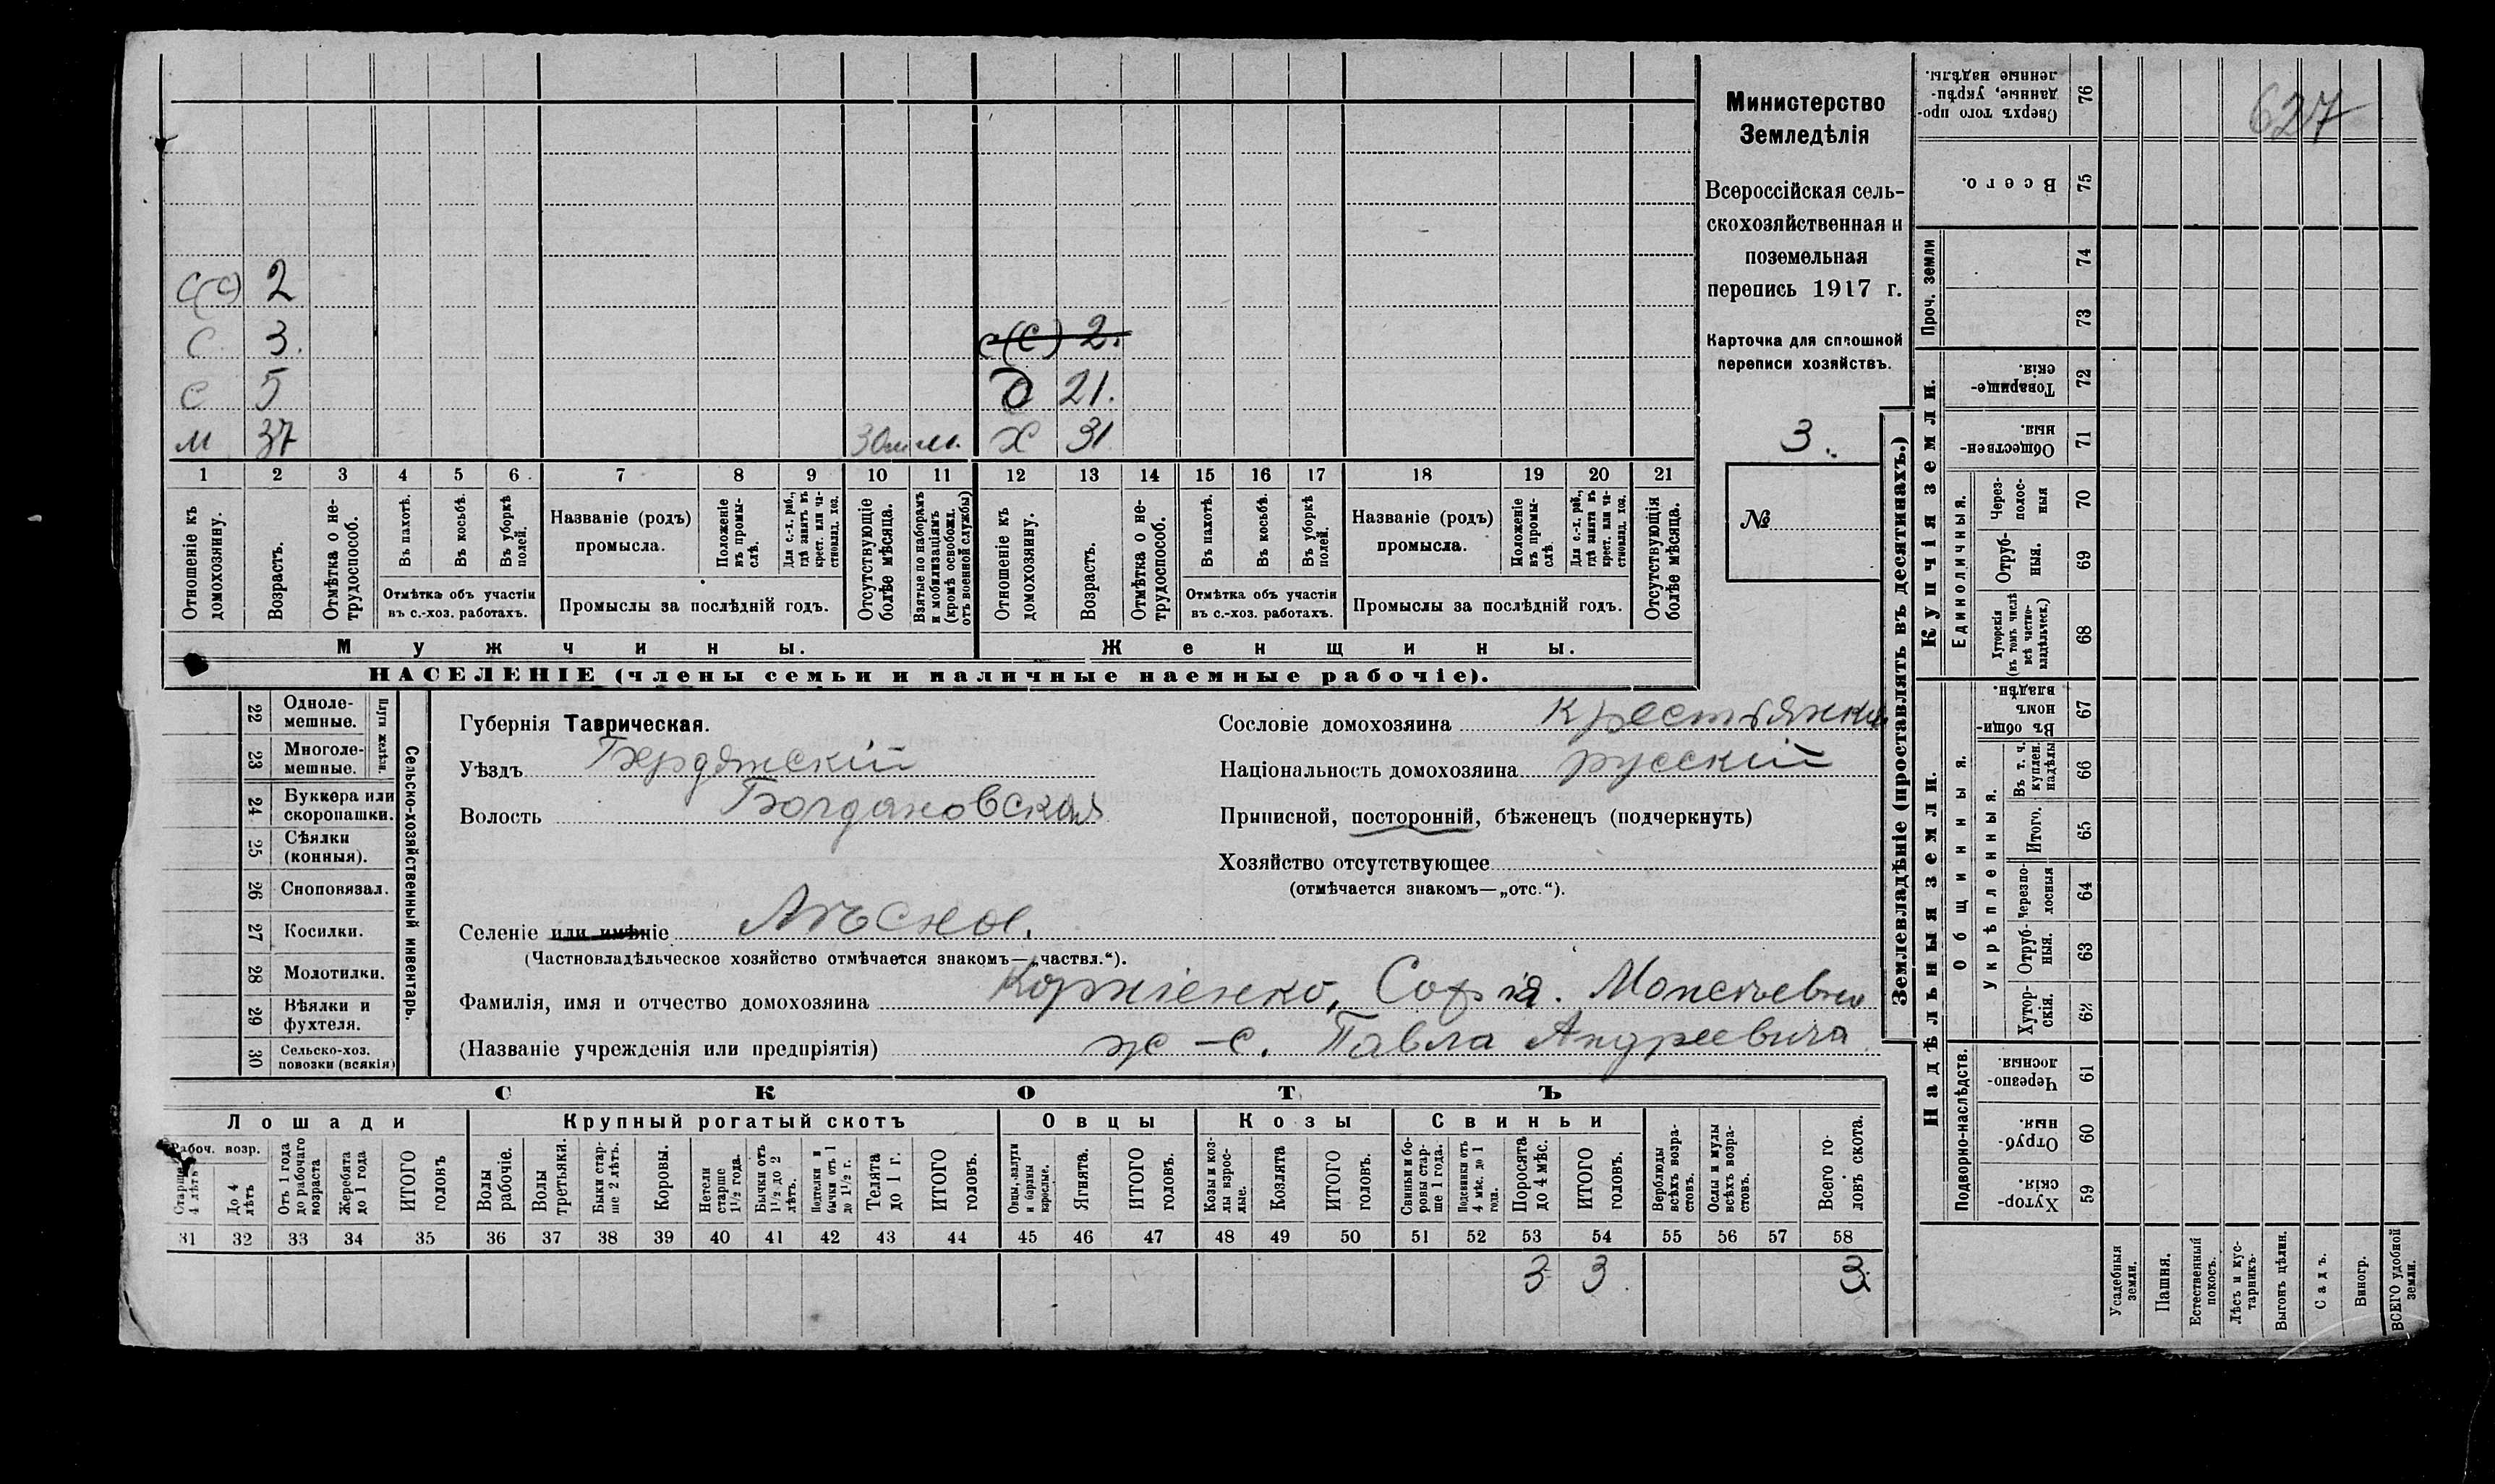 627
Министерство
Земледѣлія
Всероссійская сель-
скохозяйственная и
поземельная
перепись 1917 г.
Карточка для сплошной
переписи хозяйствъ.
3.
№
с(с) 2
с 3. с(с) 2.
с 5 д 21.
м 37 м. х 31
1 2 3 4 5 6 7 8 9 10 11 12 13 14 15 16 17 18 19 20 21
Отношеніе къ домохозяину.
Возрастъ.
Отмѣтка о не-трудоспособ.
Въ пахотѣ.
Въ косьбѣ.
Въ уборкѣ полей.
Отмѣтка объ участіи
въ с.-хоз. работахъ.
Названіе (родъ)
промысла.
Положеніе въ промы-слѣ.
Для с.-х. раб., гдѣ занятъ въ крест. или ча-стновлад. хоз.
Промыслы за послѣдній годъ.
Отсутствующіе болѣе мѣсяца.
Взятые по наборамъ и мобилизаціямъ (кромѣ освобожд. отъ военной службы)
Отношеніе къ домохозяину.
Возрастъ.
Отмѣтка о не-трудоспособ.
Въ пахотѣ.
Въ косьбѣ.
Въ уборкѣ полей.
Отмѣтка объ участіи
въ с.-хоз. работахъ.
Названіе (родъ)
промысла.
Положеніе въ промы-слѣ.
Для с.-х. раб., гдѣ занята въ крест. или ча-стновлад. хоз.
Промыслы за послѣдній годъ.
Отсутствующія болѣе мѣсяца.
Мужчины. Женщины.
НАСЕЛЕНІЕ (члены семьи и наличные наемные рабочіе).
22 Одноле-мешные.
23 Многоле-мешные.
Плуги желѣзн.
24 Буккера или скоропашки.
25 Сѣялки (конныя).
26 Сноповязал.
27 Косилки.
28 Молотилки.
29 Вѣялки и фухтеля.
30 Сельско-хоз. повозки (всякія)
Сельско-хозяйственный инвентарь.
Губернія Таврическая.
Уѣздъ Бердянскій
Волость Богдановская
Сословіе домохозяина Крестьянка
Національность домохозяина русскій
Приписной, посторонній, бѣженецъ (подчеркнуть)
Хозяйство отсутствующее
(отмѣчается знакомъ—„отс.“).
Селеніе или имѣніе Лѣсное.
(Частновладѣльческое хозяйство отмѣчается знакомъ—„частвл.“).
Фамилія, имя и отчество домохозяина Корніенко, Софія.
(Названіе учрежденія или предпріятія) ж-с. Павла Андреевича
СКОТЪ
Лошади Крупный рогатый скотъ Овцы Козы Свиньи
Рабоч. возр.
Старше 4 лѣтъ
До 4 лѣтъ
Отъ 1 года до рабочаго возраста
Жеребята до 1 года
ИТОГО головъ
Волы рабочіе.
Волы третьяки.
Быки стар-ше 2 лѣтъ.
Коровы.
Нетели старше 1½ года.
Бычки отъ 1½ до 2 лѣтъ.
Подтелки и бычки отъ 1 до 1½ г.
Телята до 1 г.
ИТОГО головъ.
Овцы, валухи и бараны взрослые.
Ягнята.
ИТОГО головъ.
Козы и коз-лы взрос-лые.
Козлята
ИТОГО головъ.
Свиньи и бо-ровы стар-ше 1 года.
Подсвинки отъ 4 мѣс. до 1 года.
Поросята до 4 мѣс.
ИТОГО головъ.
Верблюды всѣхъ возра-стовъ.
Ослы и мулы всѣхъ возра-стовъ.
Всего го-ловъ скота.
31 32 33 34 35 36 37 38 39 40 41 42 43 44 45 46 47 48 49 50 51 52 53 54 55 56 57 58
3 3 3
Землевладѣніе (проставлять въ десятинахъ.)
Купчія земли.
Надѣльныя земли.
Проч. земли
Единоличныя.
Общинныя.
Укрѣпленныя.
Подворно-наслѣдств.
Сверхъ того про-данные, укрѣп-ленные надѣлы. 76
Всего. 75
74
73
Товарище-скія. 72
Обществен-ныя. 71
Через-полос-ныя 70
Отруб-ныя. 69
Хуторскія (въ томъ числѣ всѣ частно-владѣльческ.) 68
Въ общи-номъ владѣн. 67
Въ т. ч. куплен. надѣлы 66
Итого. 65
Черезпо-лосныя 64
Отруб-ныя. 63
Хутор-скія. 62
Черезпо-лосныя. 61
Отруб-ныя. 60
Хутор-скія. 59
Усадебныя земли.
Пашня.
Естественный покосъ.
Лѣсъ и кус-тарникъ.
Выгонъ цѣлин.
Садъ.
Виногр.
ВСЕГО удобной земли.